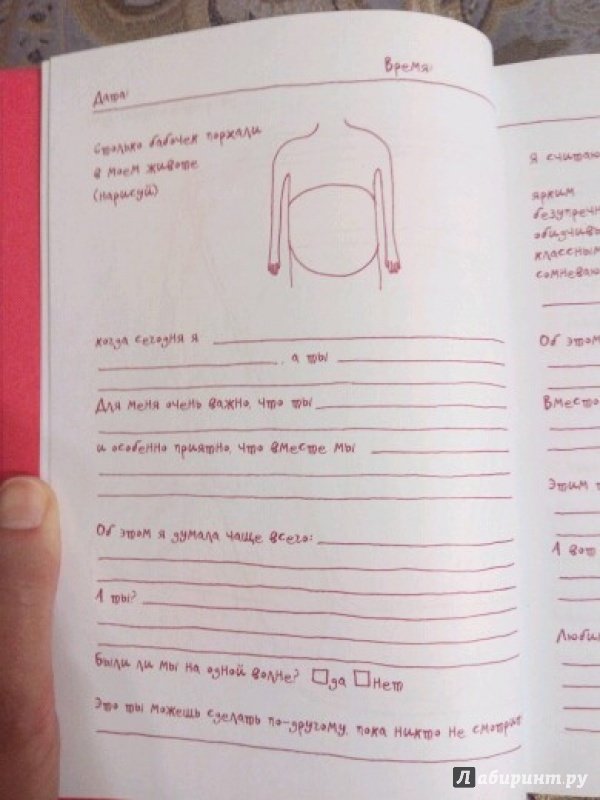 Дата:
Время:
Столько бабочек порхали
в моем животе
(нарисуй)
когда сегодня я
, а ты
Для меня очень важно, что ты
и особенно приятно, что вместе мы
Об этом я думала чаще всего:
А ты?
Были ли мы на одной волне? да нет
Это ты можешь сделать по-другому, пока никто не смотрит
Я считаю
ярким
безупречн
обидчивы
классным
сомневаю
Об этом
Вместо
Этим
А вот
Любим
Лабиринт.ру